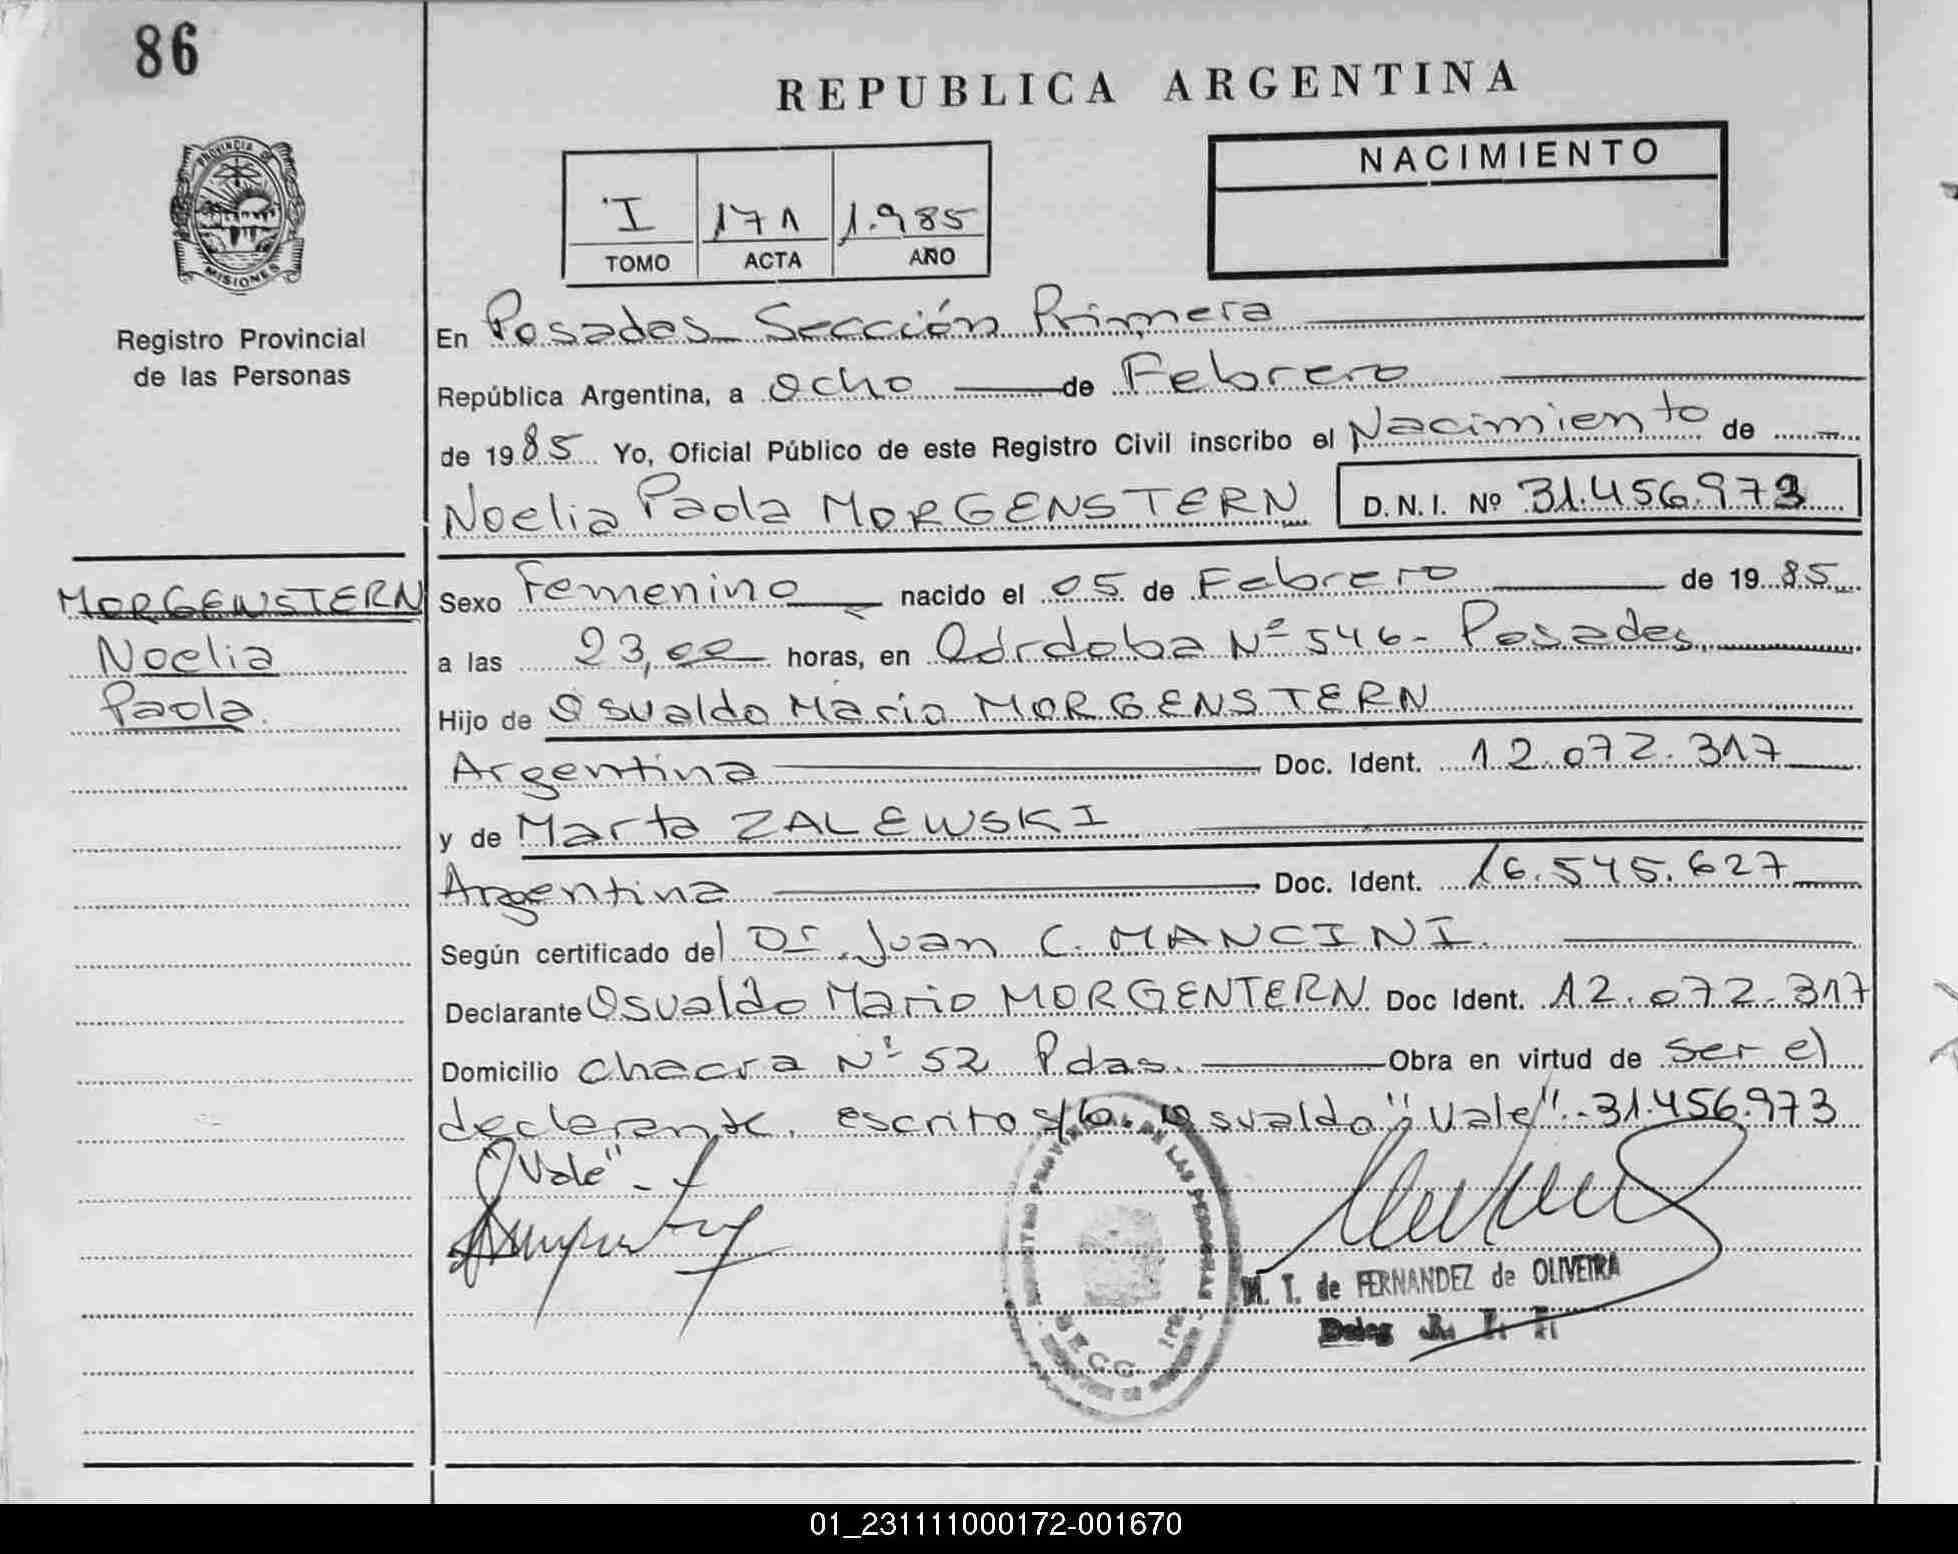 86
REPUBLICA ARGENTINA
NACIMIENTO
I 171 1.985
TOMO ACTA AÑO
PROVINCIA DE
MISIONES
Registro Provincial
de las Personas
En Posadas Sección Primera
República Argentina, a Ocho de Febrero
de 1985 Yo, Oficial Público de este Registro Civil inscribo el Nacimiento de
Noelia Paola MORGENSTERN D.N.I. Nº 31.456.973
MORGENSTERN
Noelia
Paola.
Sexo Femenino nacido el 05 de Febrero de 1985
a las 23,00 horas, en Córdoba Nº 546- Posadas
Hijo de Osvaldo Mario MORGENSTERN
Argentina Doc. Ident. 12.072.317
y de Marta ZALEWSKI
Argentina Doc. Ident. 16.545.627
Según certificado del Dr. Juan C. MANCINI.
Declarante Osvaldo Mario MORGENTERN Doc Ident. 12.072.317
Domicilio chacra Nº 52 Pdas. Obra en virtud de ser el
declarante. escrito s/b. "Osvaldo"; Vale". 31.456.973
"Vale" -
M. T. de FERNANDEZ de OLIVEIRA
Deleg
01_231111000172-001670